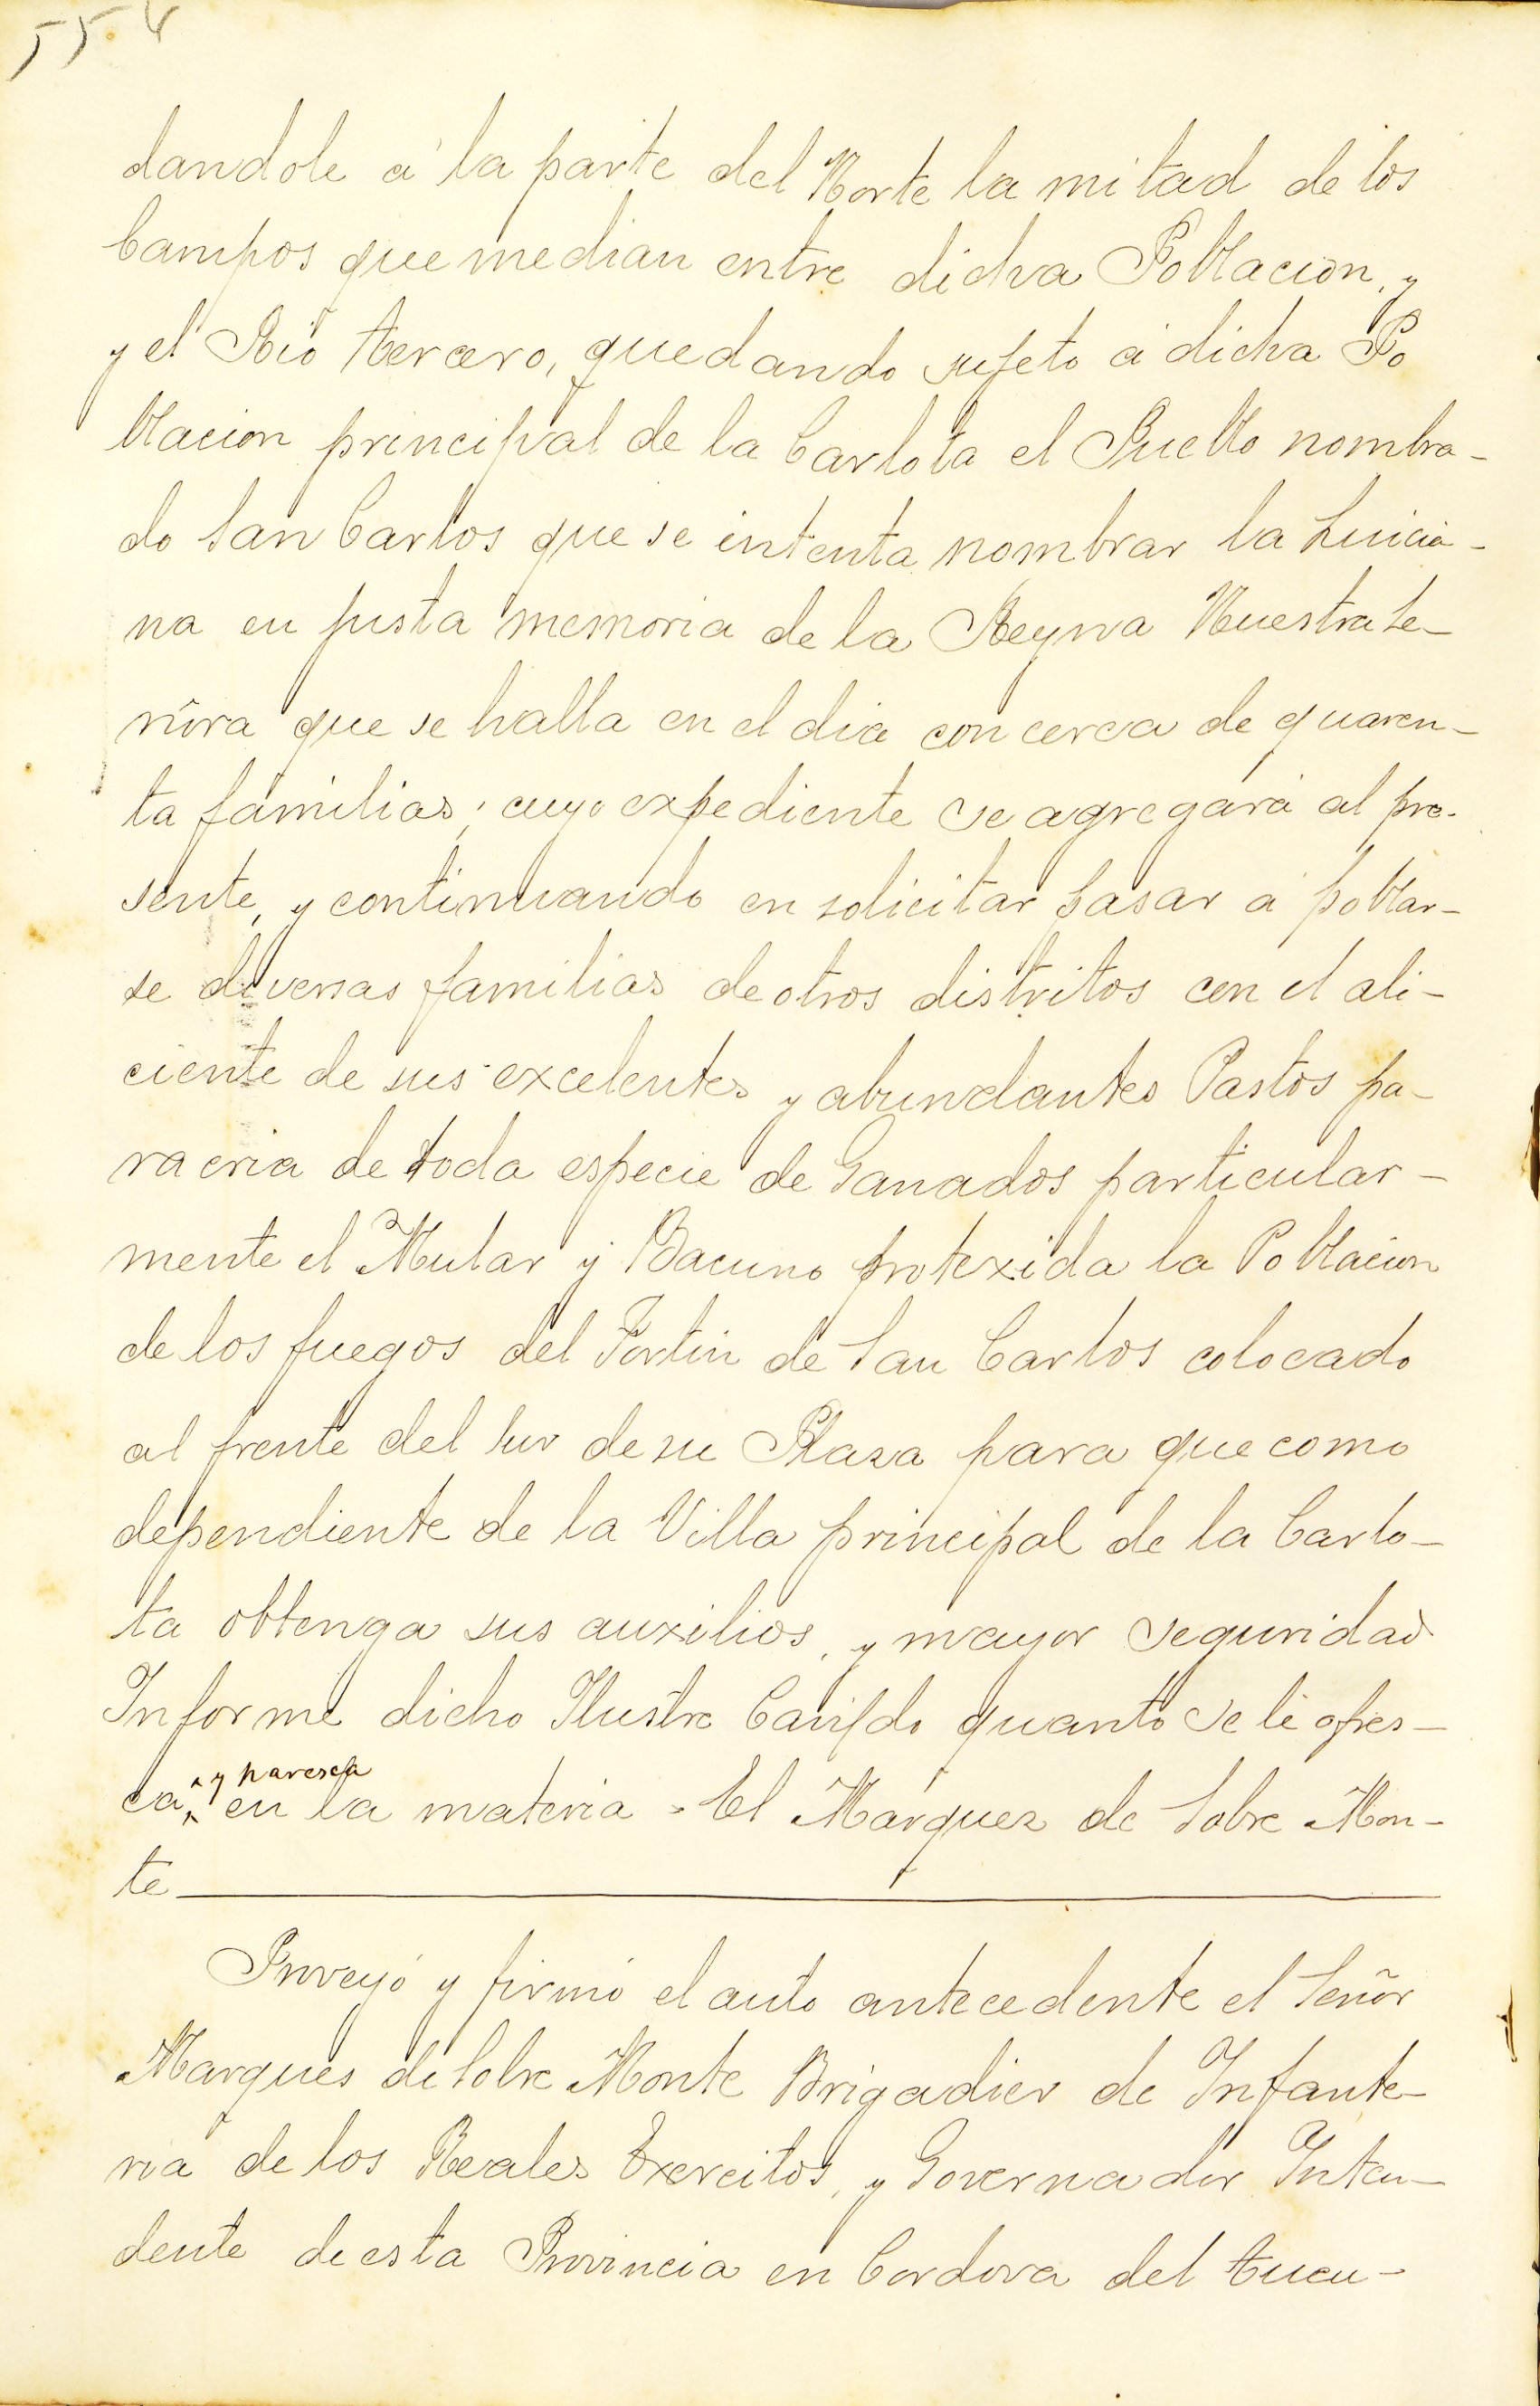 554
dandole á la parte del Norte la mitad de los
Campos que median entre dicha Poblacion, y
y el Rio tercero, quedando sujeto á dicha Po
blacion principal de la Carlota el Pueblo nombra-
do San Carlos que se intenta nombrar la Luicia-
na en justa memoria de la Reyna Nuestra Se-
ñora que se halla en el dia con cerca de quaren-
ta familias; cuyo expediente se agregará al pre-
sente, y continuando en solicitar pasar á poblar-
se diversas familias de otros distritos con el ali-
ciente de sus excelentes y abundantes Pastos pa-
ra cria de toda especie de Ganados particular-
mente el Mular y Bacuno protexida la Poblacion
de los fuegos del Fortin de San Carlos colocado
al frente del Sur de su Plaza para que como
dependiente de la Villa principal de la Carlo-
ta obtenga sus auxilios, y mayor seguridad
Informe dicho Ilustre Cavildo quanto se le ofres-
y paresca
ca, en la materia - El Marquez de Sobre Mon-
te
Proveyó y firmó el auto antecedente el Señor
Marques de Sobre Monte Brigadier de Infante-
ria de los Reales Exercitos, y Governador Inten-
dente de esta Provincia en Cordova del tucu-